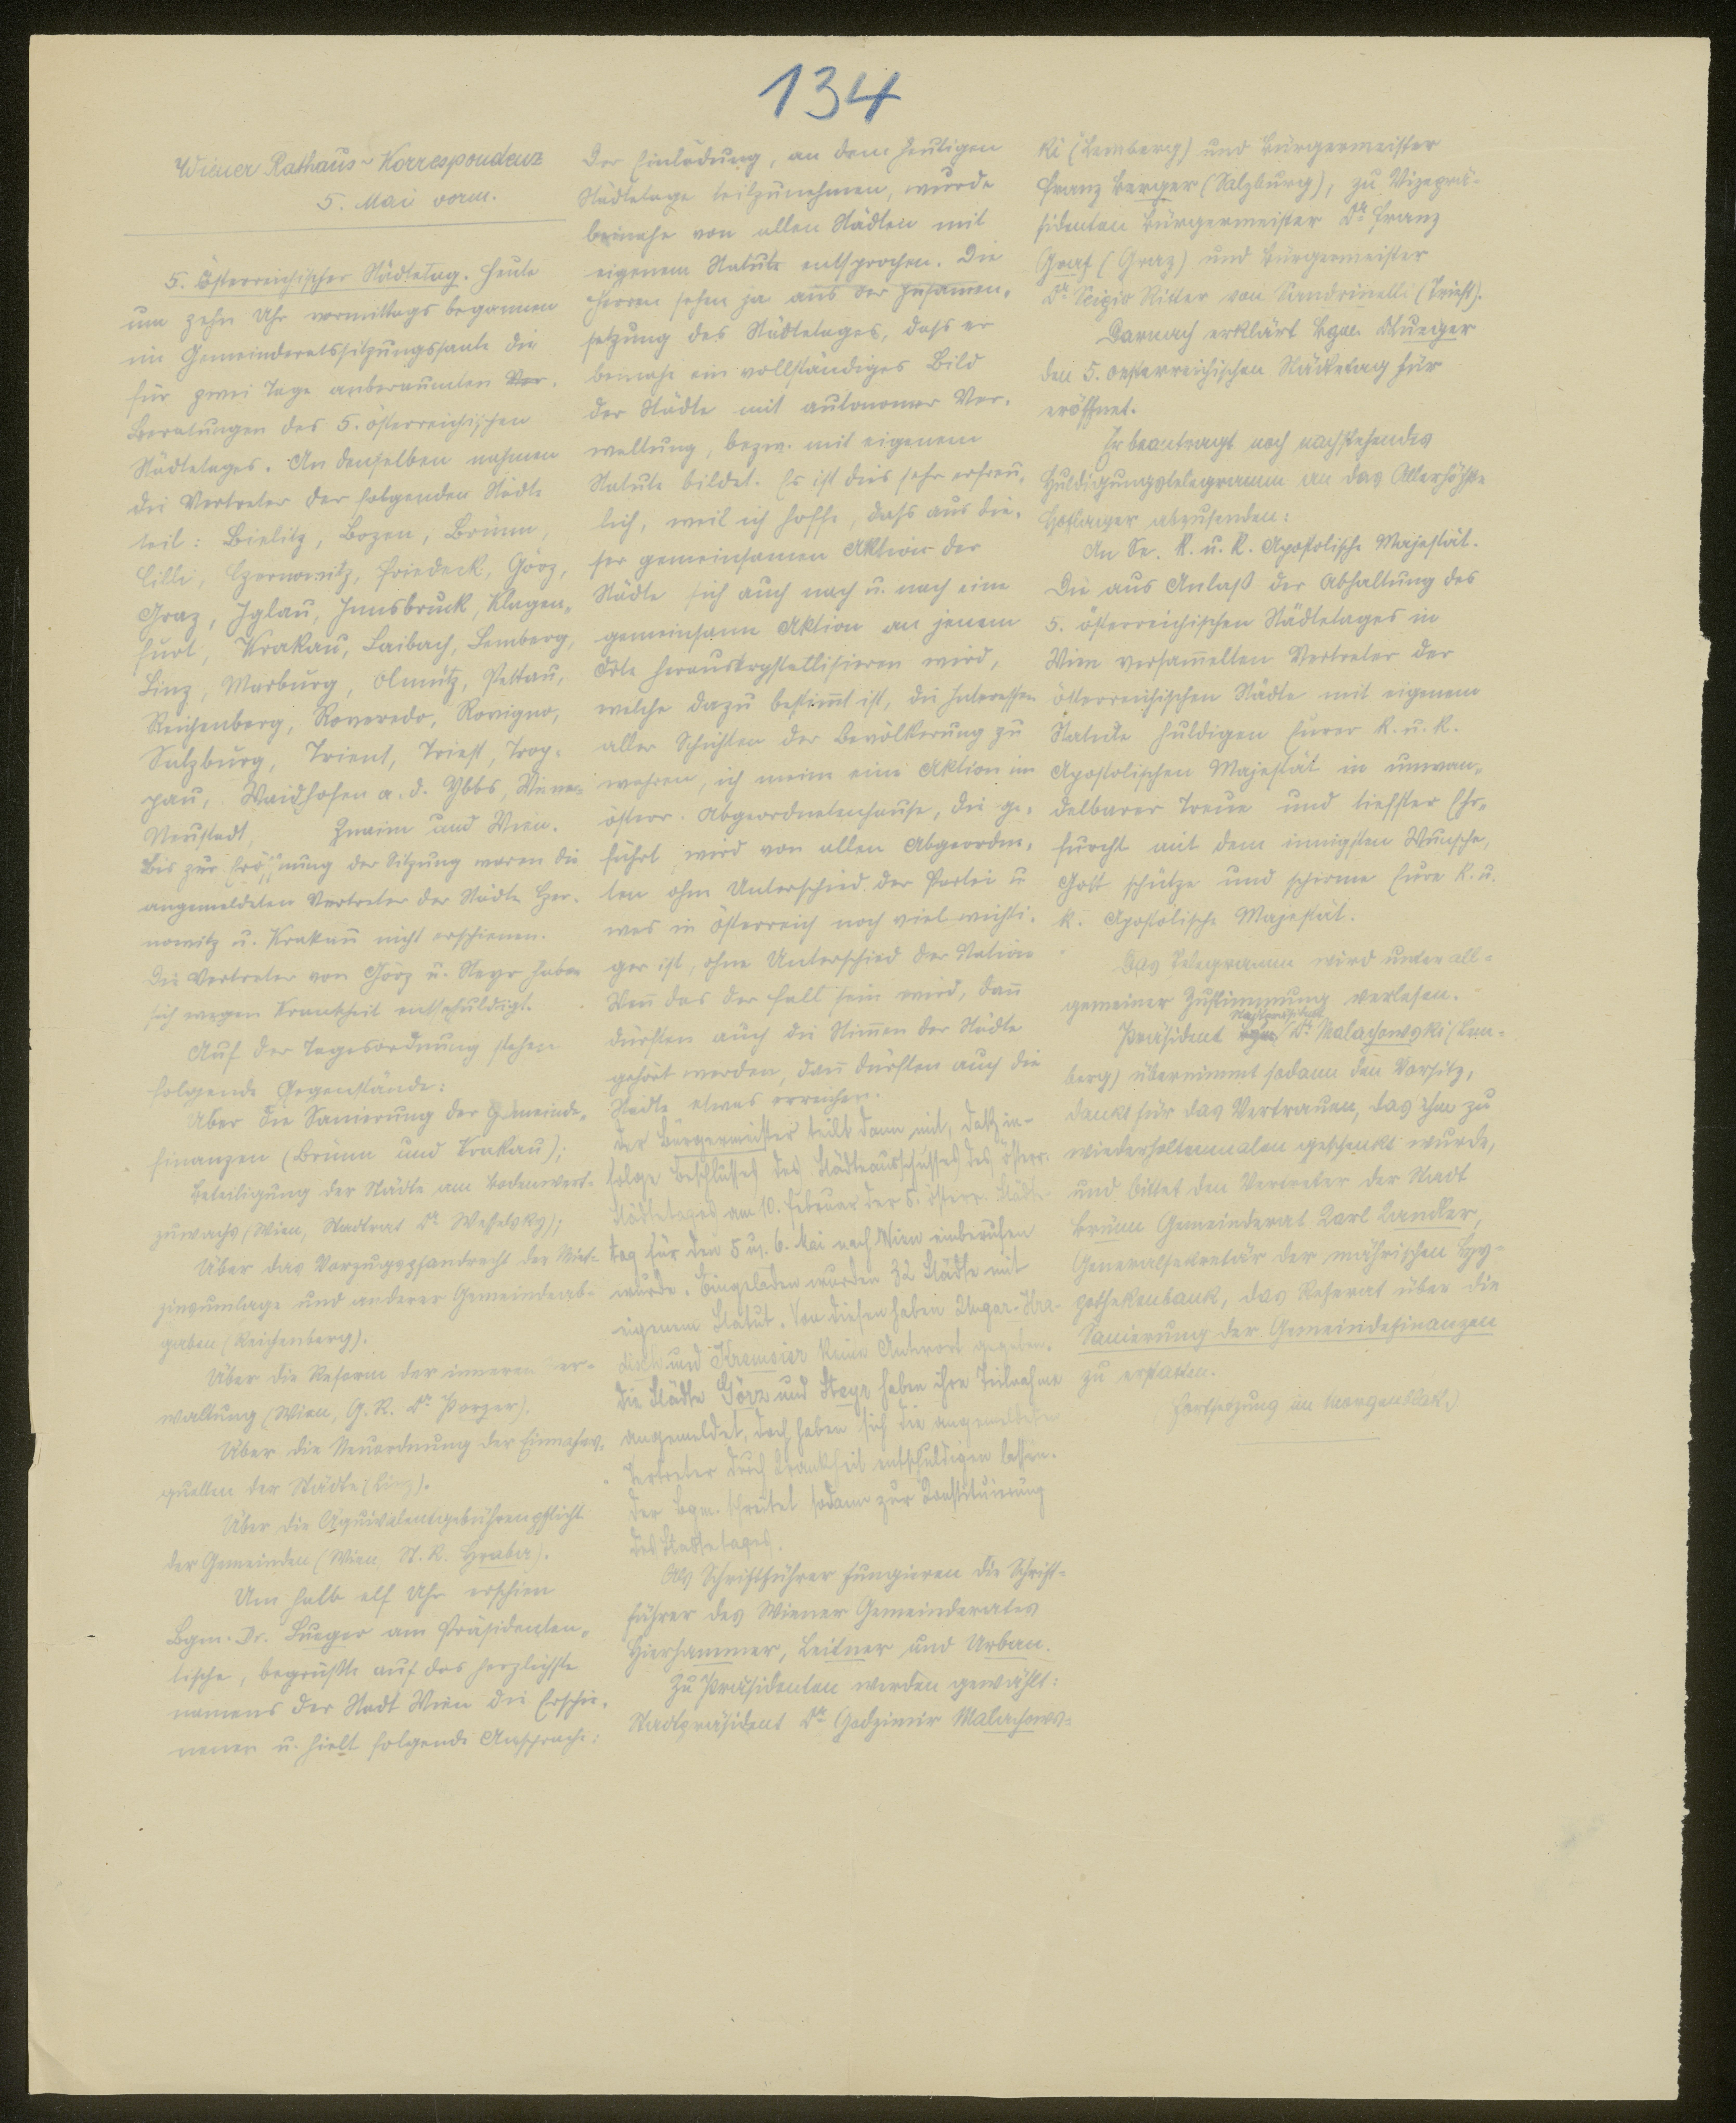 134
Wiener Rathaus-Korrespondenz
5. Mai vorm.
5. Österreichischer Städtetag. Heute
um zehn Uhr vormittags begannen
im Gemeinderatssitzungssaale die
für zwei Tage anberaumten Ver-
Beratungen des 5. österreichischen
Städtetages. An denselben nahmen
die Vertreter der folgenden Städte
teil: Bielitz, Bozen, Brünn,
Cilli, Czernowitz, Friedeck, Görz,
Graz, Iglau, Innsbruck, Klagen-
furt, Krakau, Laibach, Lemberg,
Linz, Marburg, Olmütz, Pettau,
Reichenberg, Roveredo, Rovigno,
Salzburg, Trient, Triest, Trop-
pau, Waidhofen a. d. Ybbs, Wiener
Neustadt, Znaim und Wien.
Bis zur Eröffnung der Sitzung waren die
angemeldeten Vertreter der Städte Czer-
nowitz u. Krakau nicht erschienen.
Die Vertreter von Görz u. Steyr haben
sich wegen Krankheit entschuldigt.
Auf der Tagesordnung stehen
folgende Gegenstände:
Über die Sanierung der Gemeinde-
finanzen (Brünn und Krakau);
Beteiligung der Städte am Bodenwert-
zuwachs (Wien, Stadtrat Dr. Weßelsky);
Über das Vorzugspfandrecht der Miet-
zinsumlage und anderer Gemeindeab-
gaben (Reichenberg).
Über die Reform der inneren Ver-
waltung (Wien, G. R. Dr. Porzer).
Über die Neuordnung der Einnahms-
quellen der Städte (Linz).
Über die Äquivalentgebührenpflicht
der Gemeinden (Wien, St. R. Hraba).
Um halb elf Uhr erschien
Bgm. Dr. Lueger am Präsidenten-
tische, begrüßte auf das herzlichste
namens der Stadt Wien die Erschie-
nenen u. hielt folgende Ansprache:
Der Einladung, an dem heutigen
Städtetage teilzunehmen, wurde
beinahe von allen Städten mit
eigenem Statute entsprochen. Die
Herren sehen ja aus der Zusammen-
setzung des Städtetages, daß er
beinahe ein vollständiges Bild
der Städte mit autonomer Ver-
waltung, bezw. mit eigenem
Statute bildet. Es ist dies sehr erfreu-
lich, weil ich hoffe, daß aus die-
ser gemeinsamen Aktion der
Städte sich auch nach u. nach eine
gemeinsame Aktion an jenem
Orte herauskrystallisieren wird,
welche dazu bestimmt ist, die Interessen
aller Schichten der Bevölkerung zu
wahren, ich meine eine Aktion im
österr. Abgeordnetenhause, die ge-
führt wird von allen Abgeordne-
ten ohne Unterschied der Partei u
was in Österreich noch viel wichti-
ger ist, ohne Unterschied der Nation
Wenn das der Fall sein wird, dann
dürften auch die Stimmen der Städte
gehört werden, dann dürften auch die
Städte etwas erreichen.
Der Bürgermeister teilt dann mit, daß in-
folge Beschlusses des Städteausschusses des österr.
Städtetages am 10. Februar der 5. österr. Städte-
tag für den 5 u. 6. Mai nach Wien einberufen
wurde. Eingeladen wurden 32 Städte mit
eigenem Statut. Von diesen haben Ungar. Hra-
disch und Kremsier keine Antwort gegeben.
Die Städte Görz und Steyr haben ihre Teilnahme
angemeldet, doch haben sich die angemeldeten
Vertreter durch Krankheit entschuldigen lassen.
Der Bgm. schreitet sodann zur Konstituierung
des Städtetages.
Als Schriftführer fungieren die Schrift-
führer des Wiener Gemeinderates
Hierhammer, Leitner und Urban.
Zu Präsidenten werden gewählt:
Stadtpräsident Dr. Godzimir Malachows-
ki (Lemberg) und Bürgermeister
Franz Berger (Salzburg), zu Vizeprä-
sidenten Bürgermeister Dr. Franz
Graf (Graz) und Bürgermeister
Dr. Scipio Ritter von Sandrinelli (Triest).
Darnach erklärt Bgm. Lueger
den 5. oesterreichischen Städtetag für
eröffnet.
Er beantragt noch nachstehendes
Huldigungstelegramm an das Allerhöchste
Hoflager abzusenden:
An Se. K. u. K. Apostolische Majestät.
Die aus Anlaß der Abhaltung des
5. österreichischen Städtetages in
Wien versammelten Vertreter der
österreichischen Städte mit eigenem
Statute huldigen Eurer K. u. K.
Apostolischen Majestät in unwan-
delbarer Treue und tiefster Ehr-
furcht mit dem innigsten Wunsche,
Gott schütze und schirme Eure K. u.
K. Apostolische Majestät.
Das Telegramm wird unter all-
gemeiner Zustimmung verlesen.
Stadtpräsident
Präsident Bgm. Dr. Malachowski (Lem-
berg) übernimmt sodann den Vorsitz,
dankt für das Vertrauen, das ihm zu
wiederholtenmalen geschenkt wurde,
und bittet den Vertreter der Stadt
Brünn Gemeinderat Karl Kandler,
Generalsekretär der mährischen Hy-
pothekenbank, das Referat über die
Sanierung der Gemeindefinanzen
zu erstatten.
(Fortsetzung im Morgenblatt.)